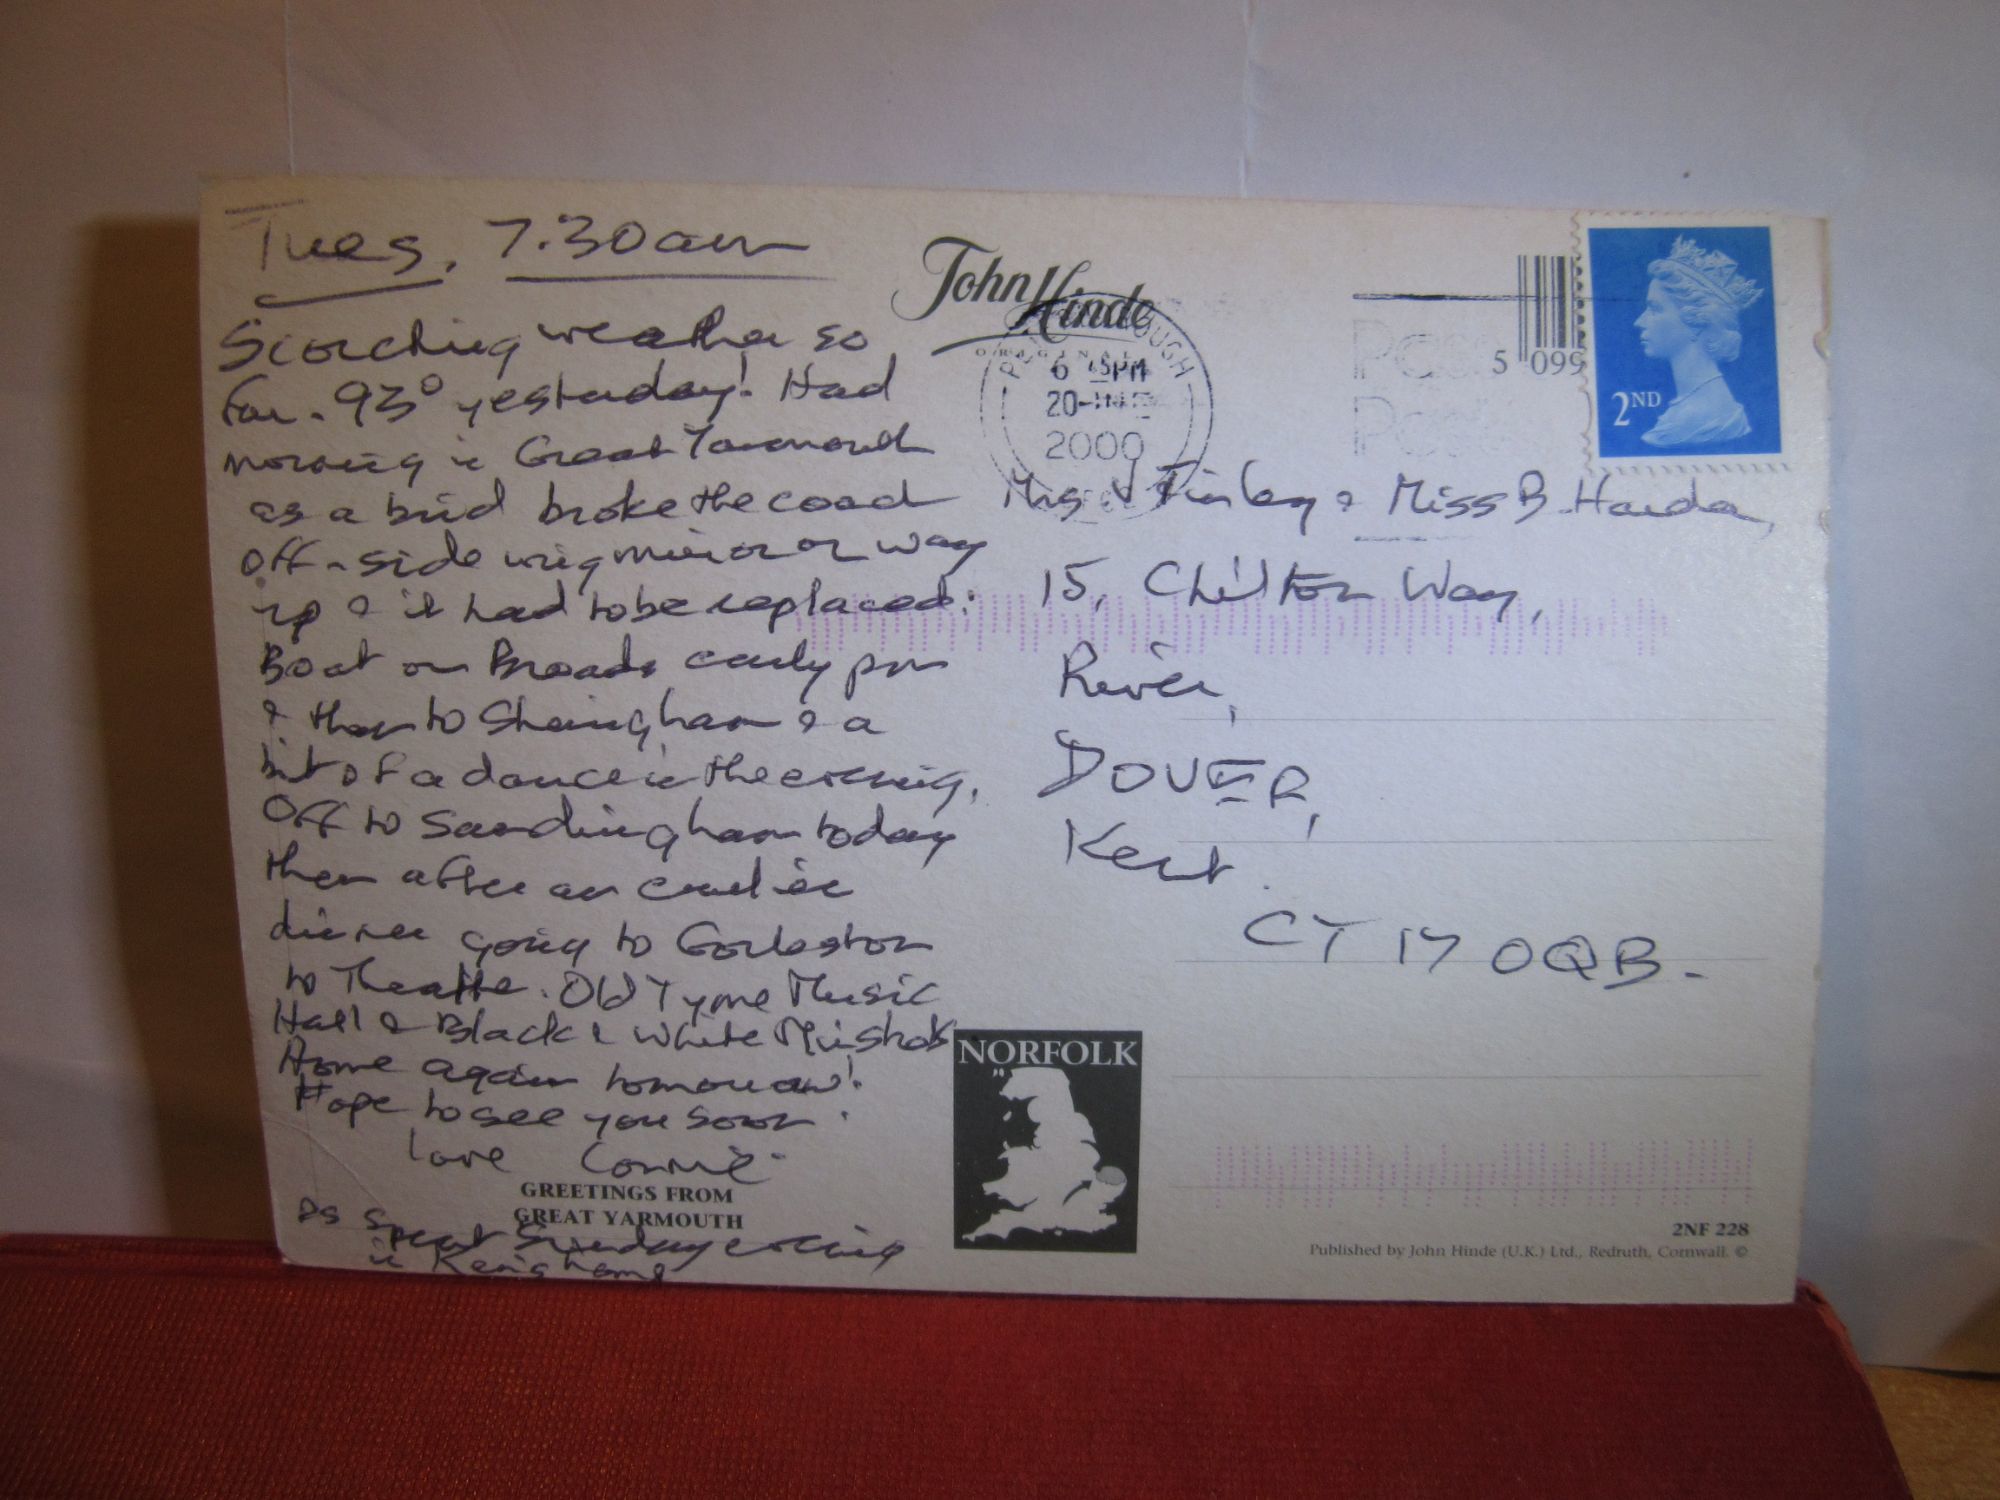 Tues, 7.30am
Scorching weather so
far. 93° yesterday! Had
morning in Great Yarmouth
as a bird broke the coach
off-side wing mirror on way
up & it had to be replaced.
Boat on Broads early pm
& then to Sheringham & a
bit of a dance in the evening.
Off to Sandringham today
then after an earlier
dinner going to Gorleston
to Theatre. Old Tyme Music
Hall & Black & White Minstrels
Home again tomorrow!
Hope to see you soon.
love Connie
GREETINGS FROM
GREAT YARMOUTH
PS Spent Sunday evening
in
John Hinde
ORIGINAL
6 PM
20
2000
Post
5 099
2ND
Mrs V Finley & Miss B. Harden,
15, Chilton Way,
River,
DOVER,
Kent.
CT17 0QB.
NORFOLK
2NF 228
Published by John Hinde (U.K.) Ltd., Redruth, Cornwall. ©